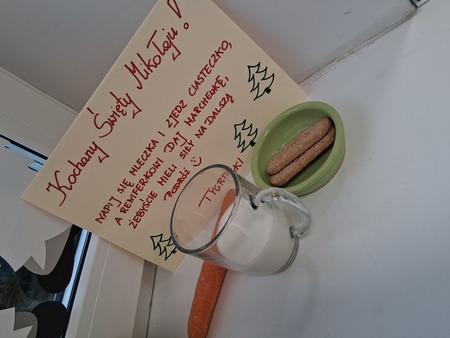 Kochany Święty Mikołaju!
NAPIJ SIĘ MLECZKA I ZJEDZ CIASTECZKO,
A RENIFERKOWI DAJ MARCHEWKĘ,
ŻEBYŚCIE MIELI SIŁY NA DALSZĄ
PODRÓŻ :)
TYGRYSKI